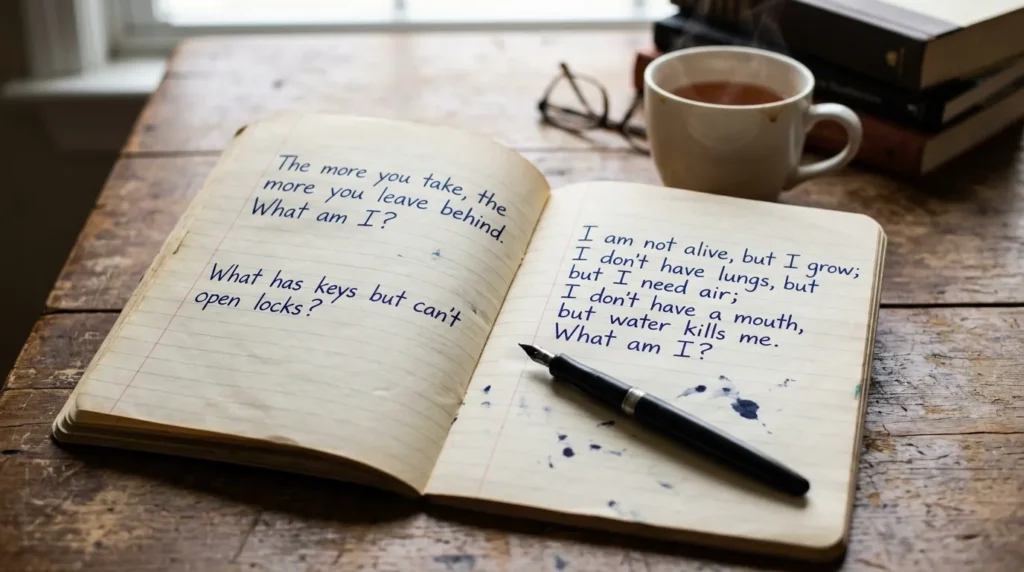 The more you take, the
more you leave behind.
What am I?
What has keys but can't
open locks?
I am not alive, but I grow;
I don't have lungs, but
but I need air;
I don't have a mouth,
but water kills me.
What am I?